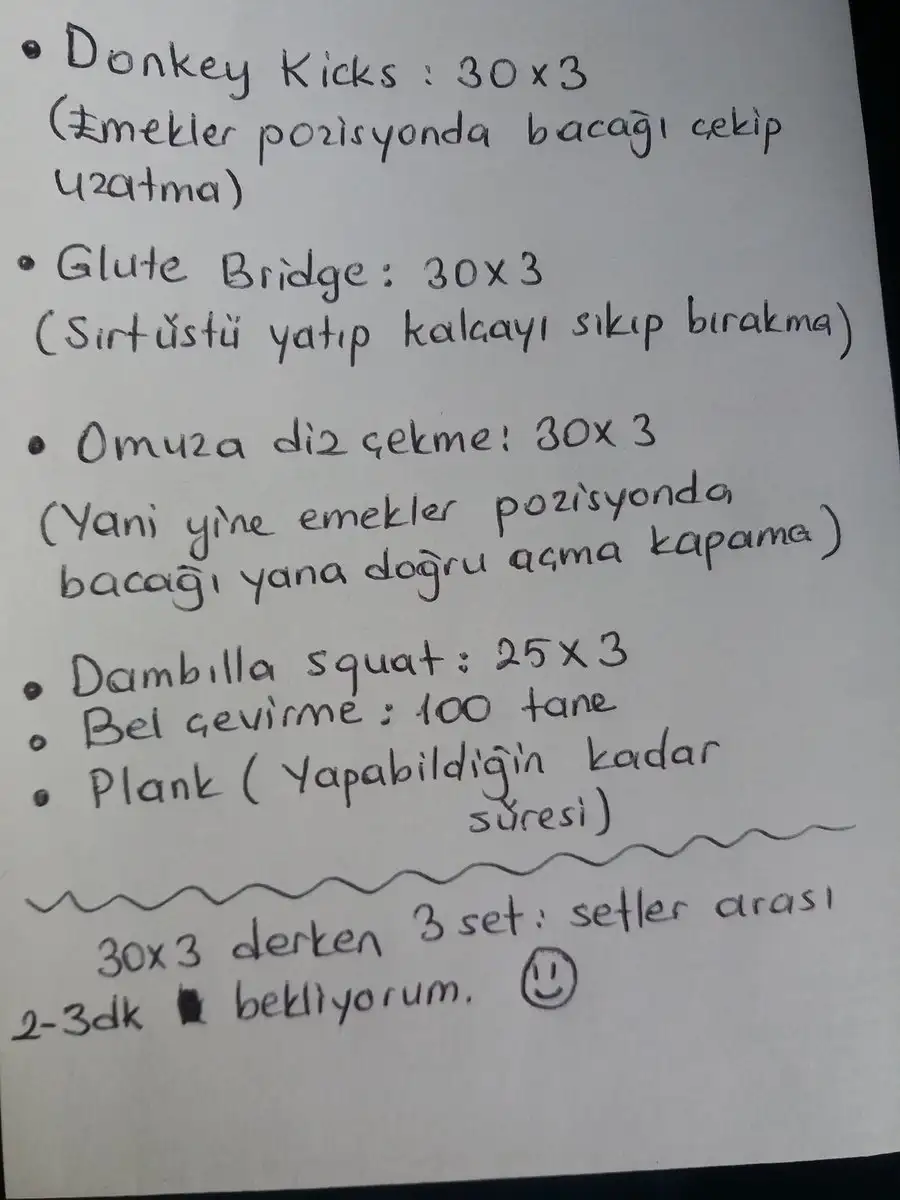 • Donkey Kicks : 30x3
(Emekler pozisyonda bacağı çekip
uzatma)
• Glute Bridge : 30x3
(Sırtüstü yatıp kalçayı sıkıp bırakma)
• Omuza diz çekme : 30x3
(Yani yine emekler pozisyonda
bacağı yana doğru açma kapama)
• Dambılla squat : 25x3
• Bel çevirme : 100 tane
• Plank (Yapabildiğin kadar
süresi)
30x3 derken 3 set : setler arası
2-3dk bekliyorum. ☺